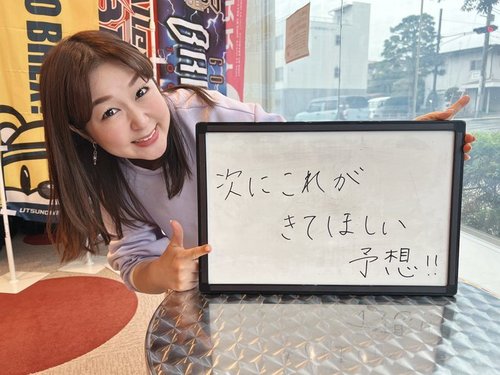 次にこれが
きてほしい
予想!!
GO
BR
UTSUNO